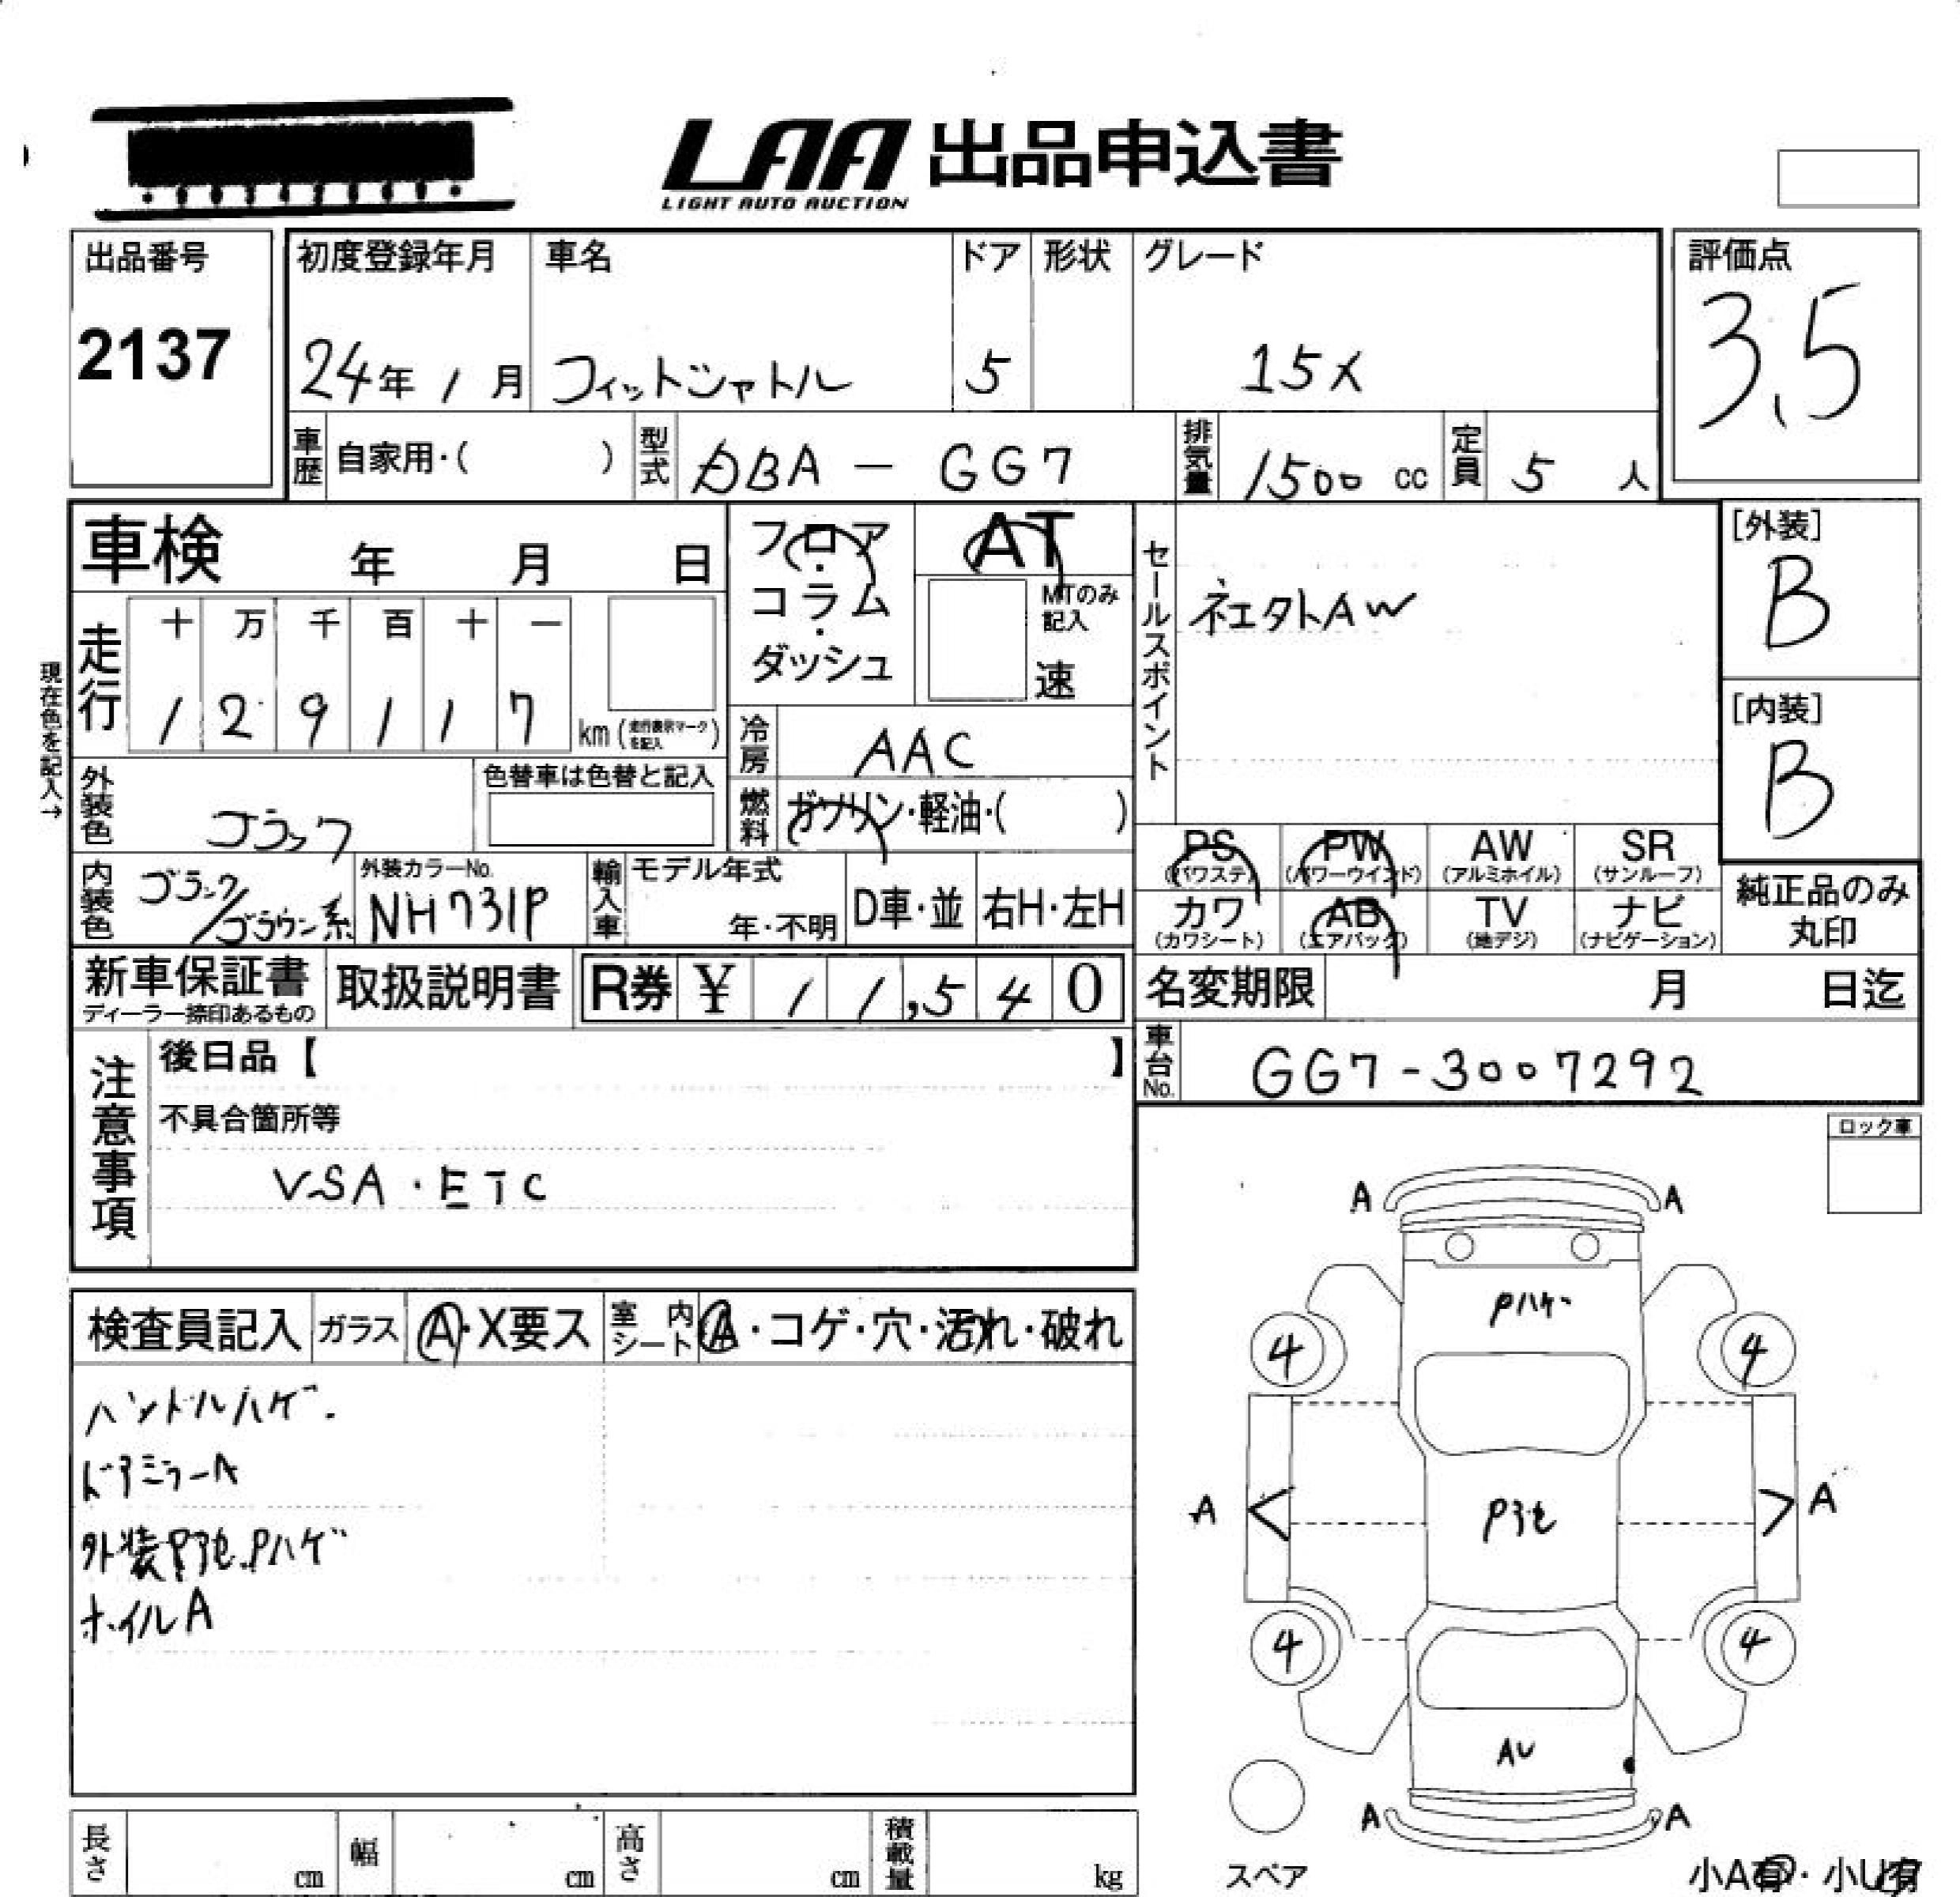 LAA 出品申込書
LIGHT AUTO AUCTION
出品番号
2137
初度登録年月
24年 1月
車名
フィットシャトル
ドア
5
形状
グレード
15X
評価点
3.5
車歴 自家用・( )
型式 DBA - GG7
排気量 1500 cc
定員 5 人
車検 年 月 日
フロア・コラム・ダッシュ
AT
MTのみ記入
速
セールスポイント
AW
[外装]
B
[内装]
B
現在色を記入→
走行
十 万 千 百 十 一
1 2 9 1 1 7
km (走行表示マークを記入)
冷房 AAC
外装色 ブラック
色替車は色替と記入
燃料 ガソリン・軽油・( )
内装色 ブラック/ブラウン系
外装カラーNo.
NH731P
輸入車 モデル年式
年・不明
D車・並 右H・左H
PS (パワステ)
PW (パワーウインド)
AW (アルミホイル)
SR (サンルーフ)
カワ (カワシート)
AB (エアバック)
TV (地デジ)
ナビ (ナビゲーション)
純正品のみ丸印
新車保証書
ディーラー捺印あるもの
取扱説明書
R券 ¥ 11,540
名変期限 月 日迄
車台No. GG7-3007292
注意事項
後日品【 】
不具合箇所等
VSA・ETC
ロック車
検査員記入 ガラス A・X要ス 室内シート A・コゲ・穴・汚れ・破れ
ハンドルハゲ.
ドアミラーA
外装Pヨセ.Pハゲ
ホイルA
A A
Pハゲ
4 4
A Pヨセ A
4 4
AU
A A
スペア
小A有・小U有
長さ cm 幅 cm 高さ cm 積載量 kg